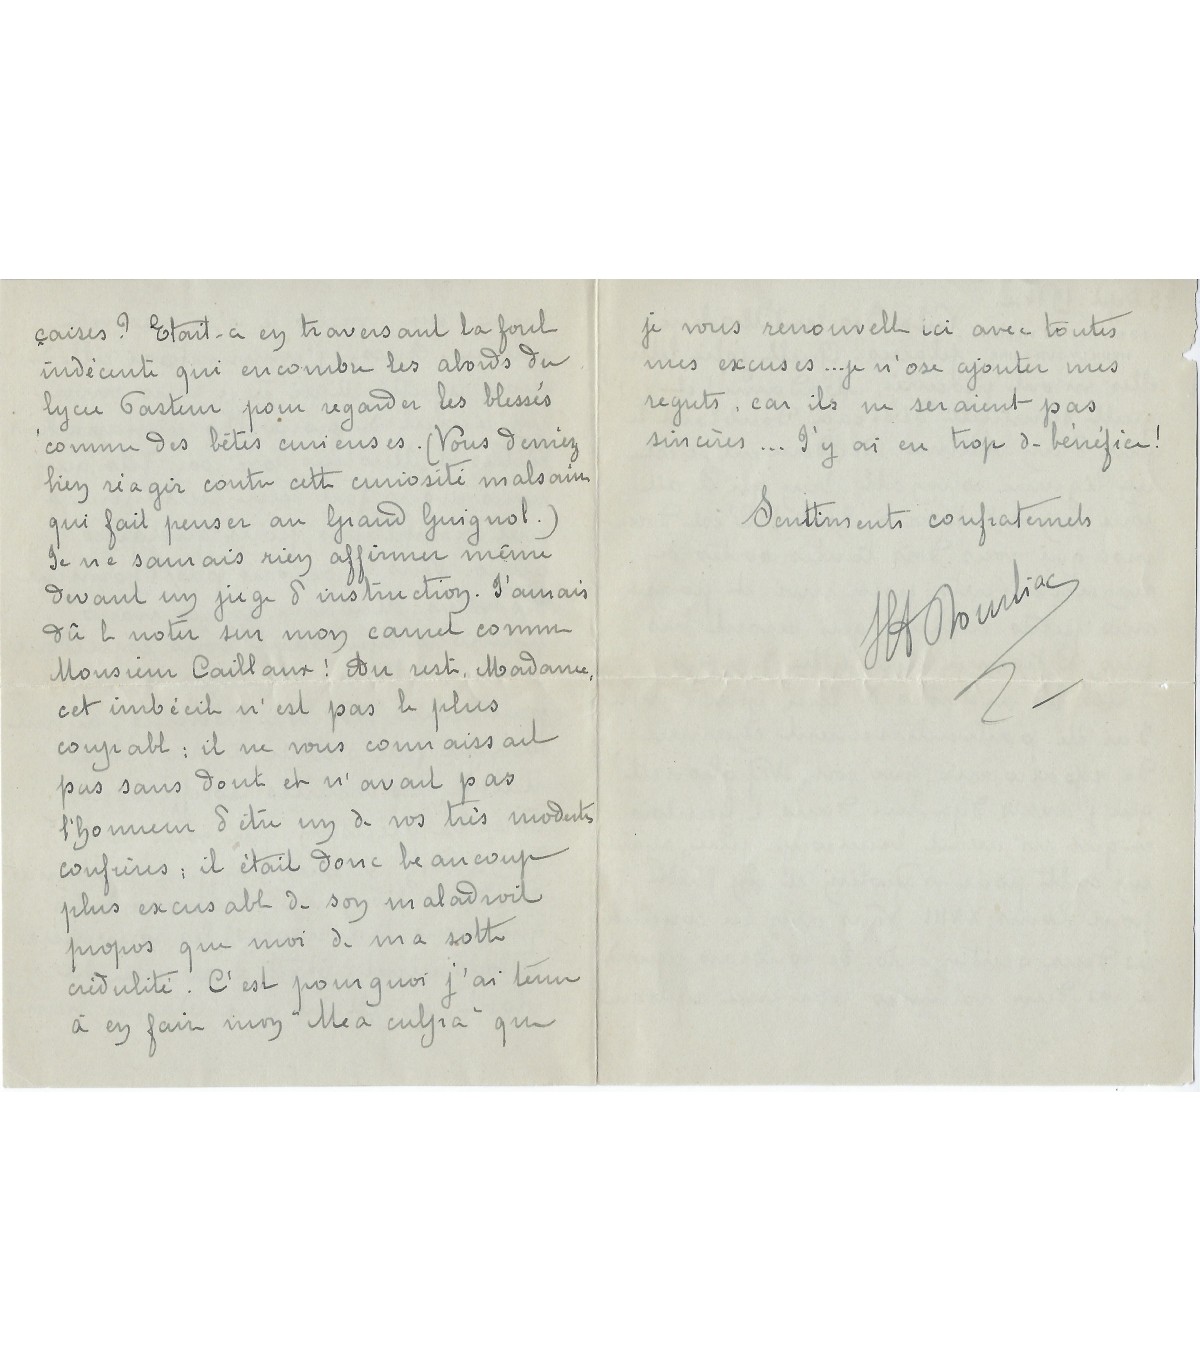 çaises ? Etait-ce en traversant la foule
indécente qui encombre les abords du
lycée Pasteur pour regarder les blessés
comme des bêtes curieuses. (Vous devriez
bien réagir contre cette curiosité malsaine
qui fait penser au Grand Guignol.)
Je ne saurais rien affirmer même
devant un juge d'instruction. J'aurais
dû le noter sur mon carnet comme
Monsieur Caillaux ! Du reste, Madame,
cet imbécile n'est pas le plus
coupable ; il ne vous connaissait
pas sans doute et n'avait pas
l'honneur d'être un de vos très modestes
confrères ; il était donc beaucoup
plus excusable de son maladroit
propos que moi de ma sotte
crédulité. C'est pourquoi j'ai tenu
à en faire mon "Mea culpa" que
je vous renouvelle ici avec toutes
mes excuses... je n'ose ajouter mes
regrets, car ils ne seraient pas
sincères... J'y ai eu trop de bénéfice !
Sentiments confraternels